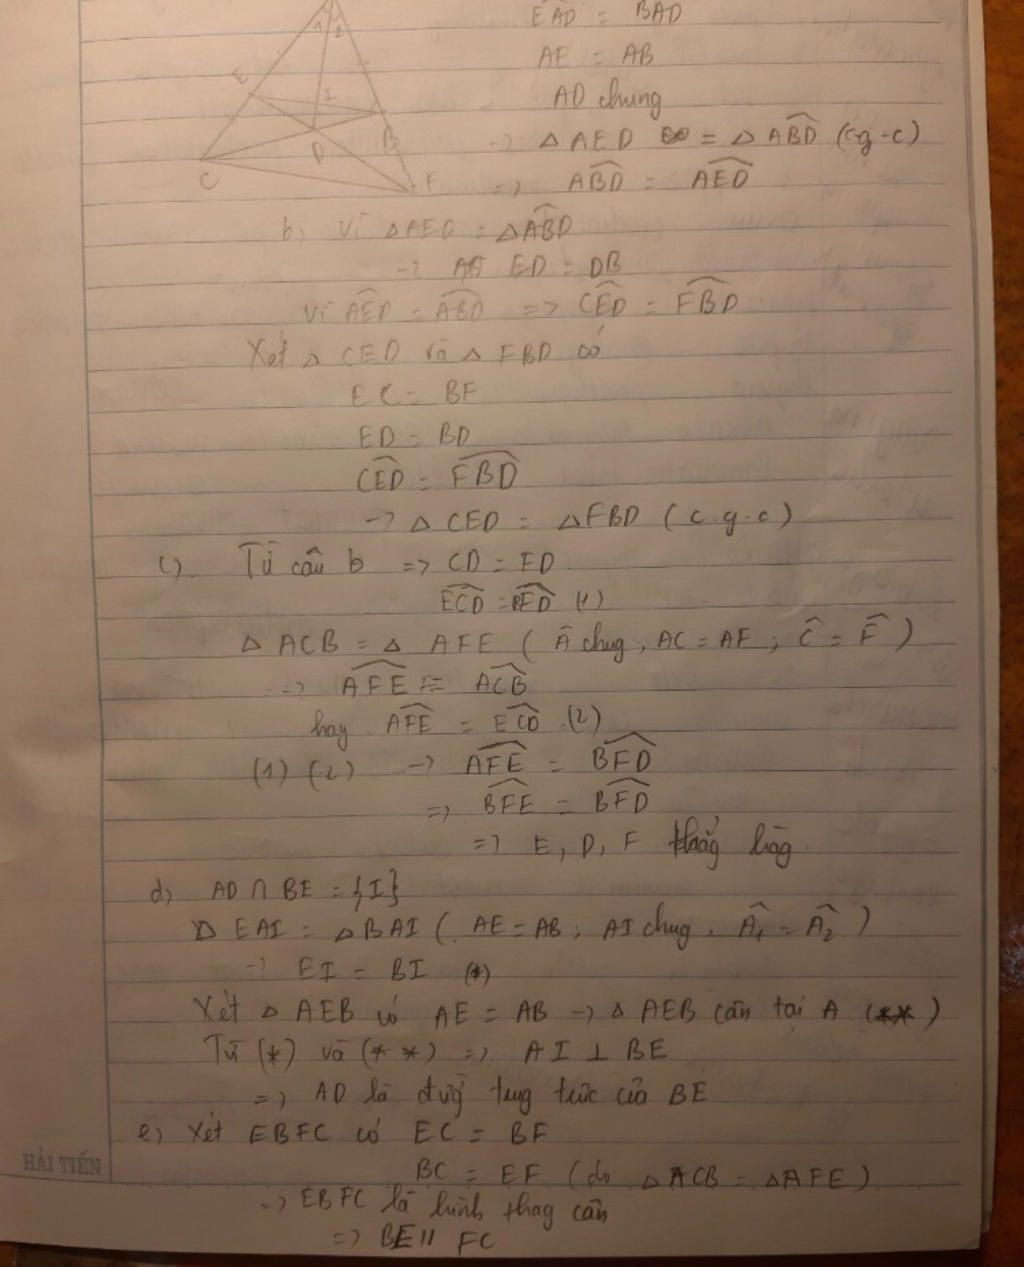 1 2
E
I
B
D
C
F
EAD = BAD
AE = AB
AD chung
-> △ AED = △ ABD (cg-c)
=> ABD = AED
b) Vì △AED = △ABD
-> ED = DB
Vì AED = ABD => CED = FBD
Xét △ CED và △ FBD có
EC = BF
ED = BD
CED = FBD
-> △ CED = △FBD (c.g.c)
c) Từ câu b => CD = FD
ECD = BFD (1)
△ ACB = △ AFE ( Â chug, AC = AF, Ĉ = F̂ )
=> AFE = ACB
hay AFE = ECD (2)
(1) (2) -> AFE = BFD
=> BFE = BFD
=> E, D, F thẳng hàng
d) AD ∩ BE = {I}
△ EAI = △BAI ( AE = AB, AI chug, Â₁ = Â₂ )
-> EI = BI (*)
Xét △ AEB có AE = AB -> △ AEB cân tại A (**)
Từ (*) và (**) => AI ⊥ BE
=> AD là đườg trug trực của BE
e) Xét EBFC có EC = BF
BC = EF (do △ACB = △AFE)
=> EBFC là hình thag cân
=> BE // FC
HẢI TIẾN